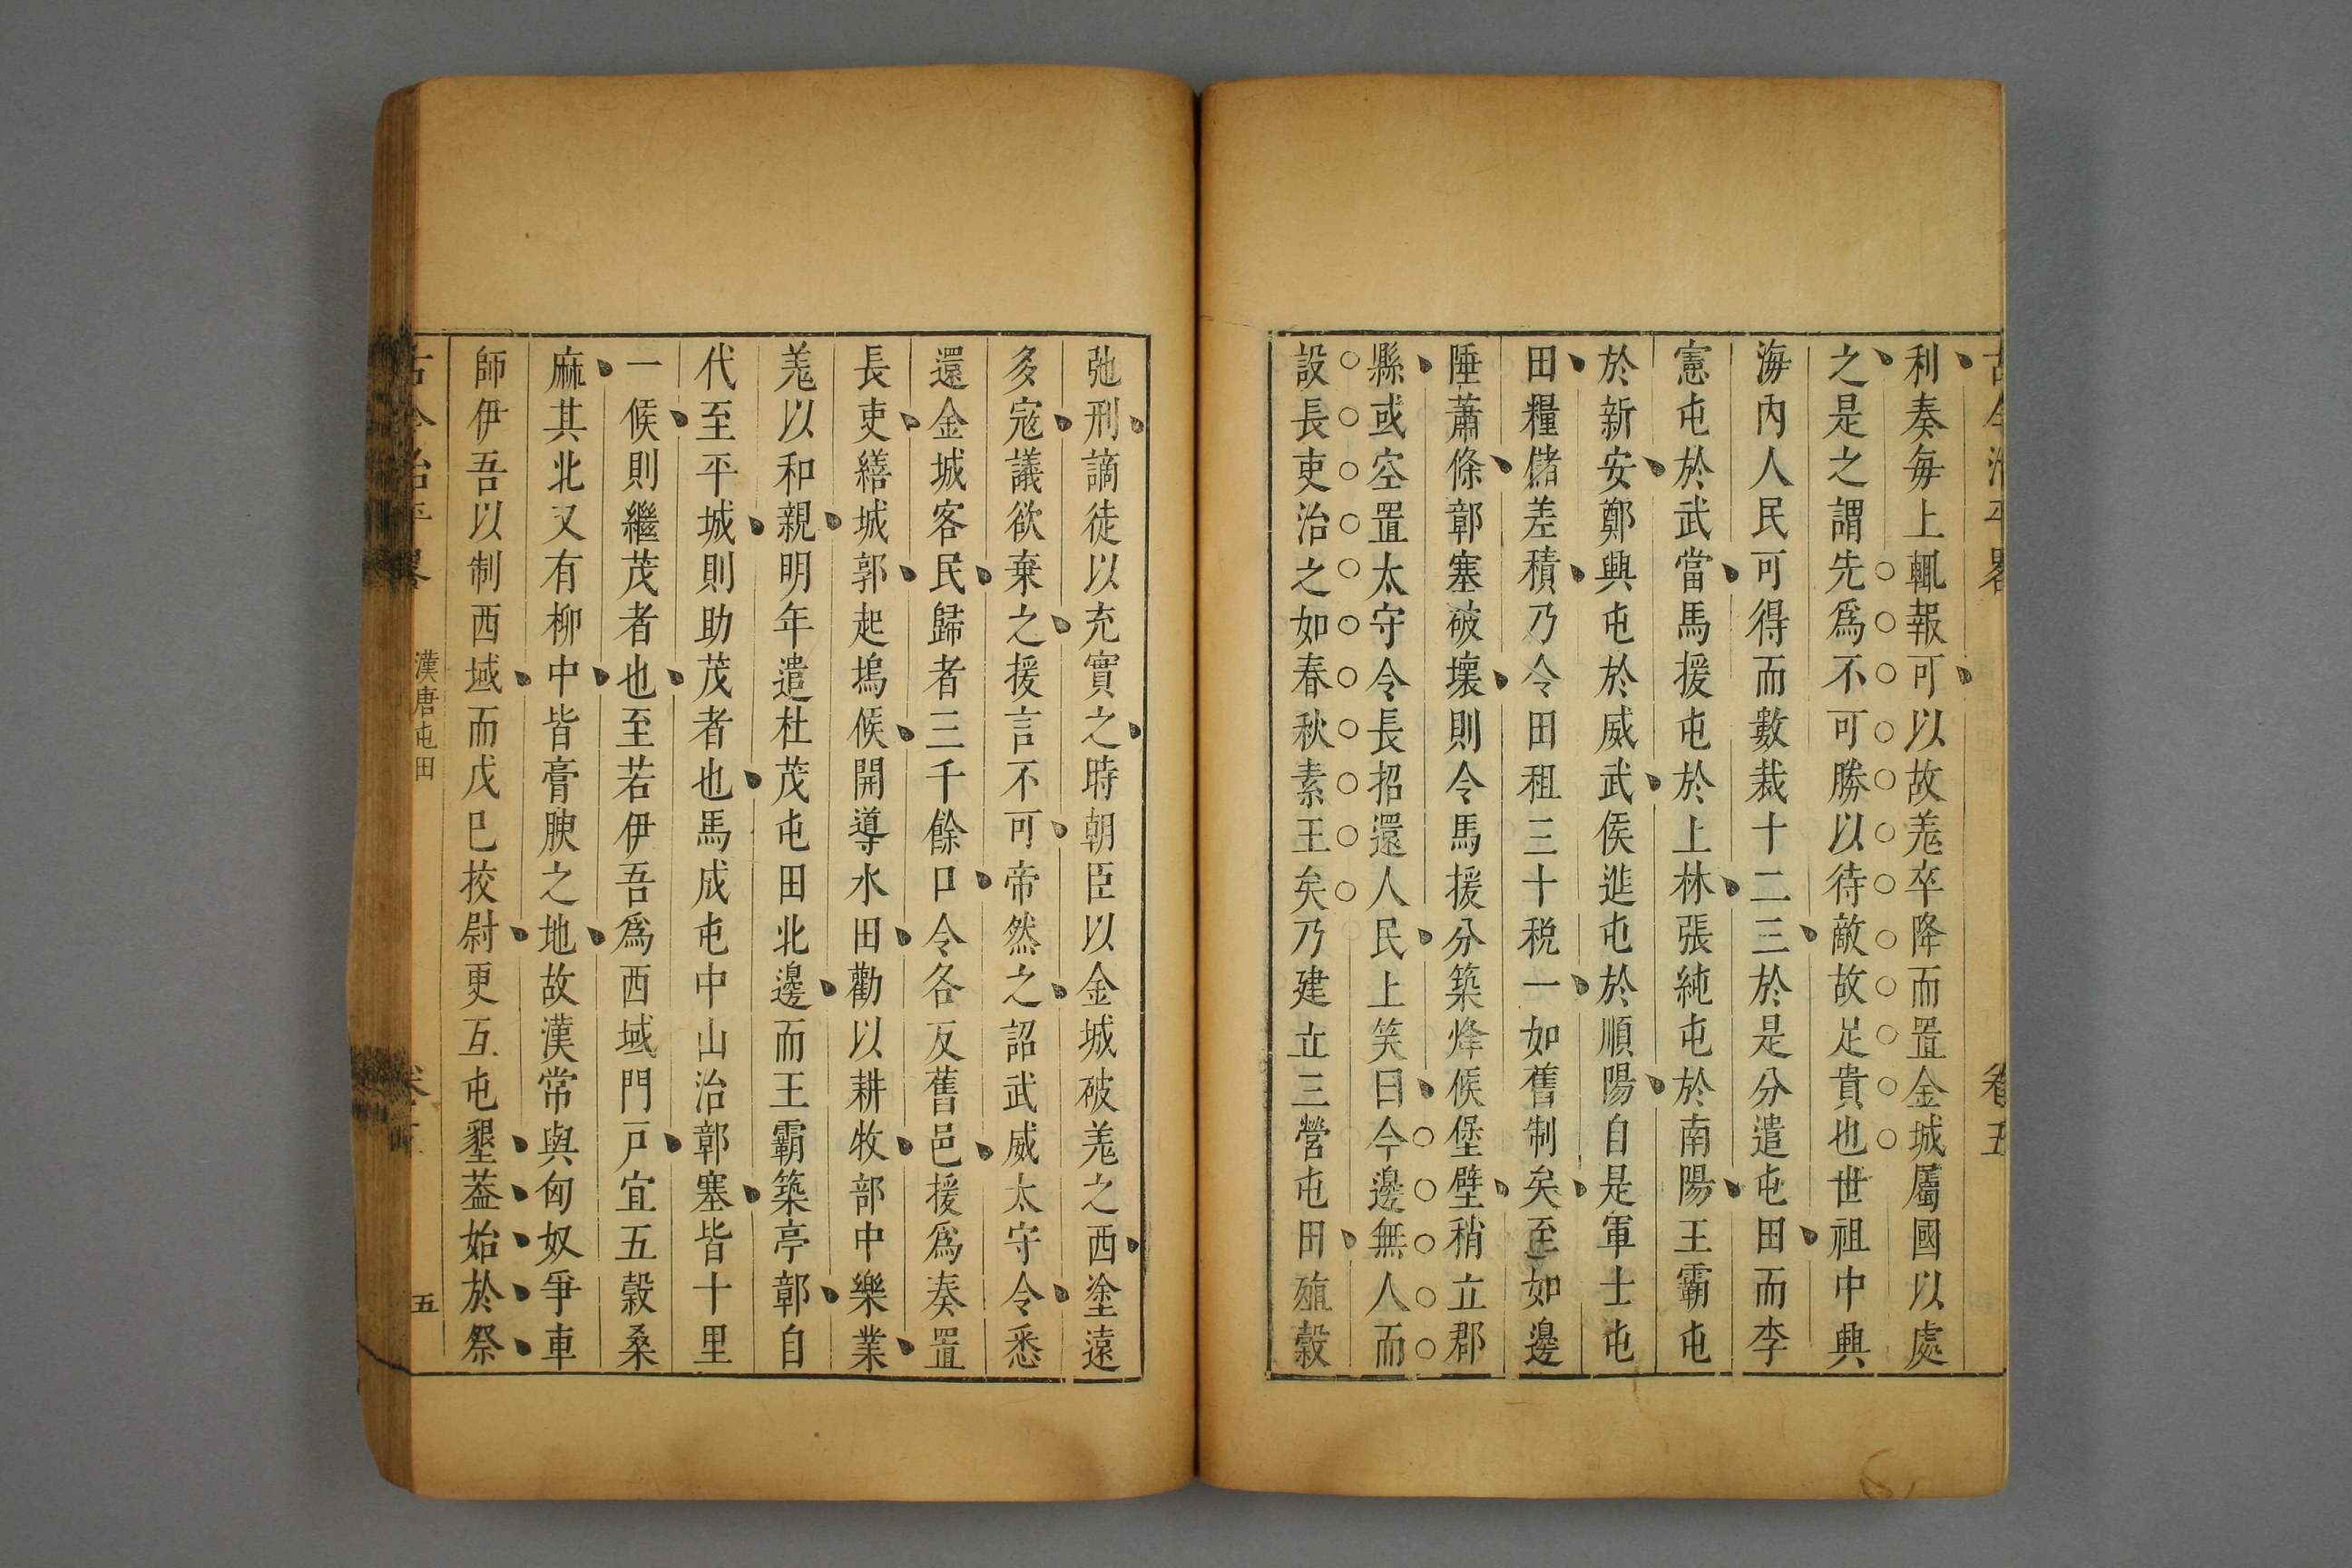 古今治平畧 卷五
利奏每上輒報可以故羗卒降而置金城屬國以處
之是之謂先爲不可勝以待敵故足貴也世祖中興
海內人民可得而數裁十二三於是分遣屯田而李
憲屯於武當馬援屯於上林張純屯於南陽王霸屯
於新安鄭興屯於威武侯進屯於順陽自是軍士屯
田糧儲差積乃令田租三十税一如舊制矣至如邊
陲蕭條鄣塞破壞則令馬援分築烽候堡壁稍立郡
縣或空置太守令長招還人民上笑曰今邊無人而
設長吏治之如春秋素王矣乃建立三營屯田殖穀
弛刑謫徒以充實之時朝臣以金城破羗之西塗遠
多寇議欲棄之援言不可帝然之詔武威太守令悉
還金城客民歸者三千餘口令各反舊邑援爲奏置
長吏繕城郭起塢候開導水田勸以耕牧部中樂業
羗以和親明年遣杜茂屯田北邊而王霸築亭鄣自
代至平城則助茂者也馬成屯中山治鄣塞皆十里
一候則繼茂者也至若伊吾爲西域門戸宜五穀桑
麻其北又有柳中皆膏腴之地故漢常與匈奴爭車
師伊吾以制西域而戊巳挍尉更互屯墾葢始於祭
古今治平畧 漢唐屯田 卷 五